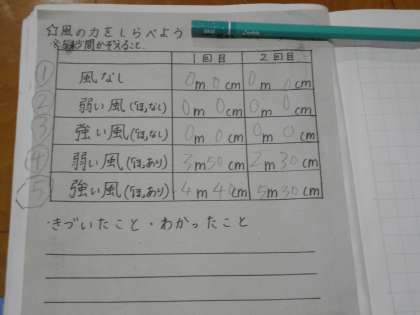 ☆風の力をしらべよう
※5秒間かぞえること
1回目 2回目
① 風なし 0m 0cm 0m 0cm
② 弱い風(ほなし) 0m 0cm 0m 0cm
③ 強い風(ほなし) 0m 0cm 0m 0cm
④ 弱い風(ほあり) 3m 50cm 2m 30cm
⑤ 強い風(ほあり) 4m 40cm 5m 30cm
・きづいたこと・わかったこと